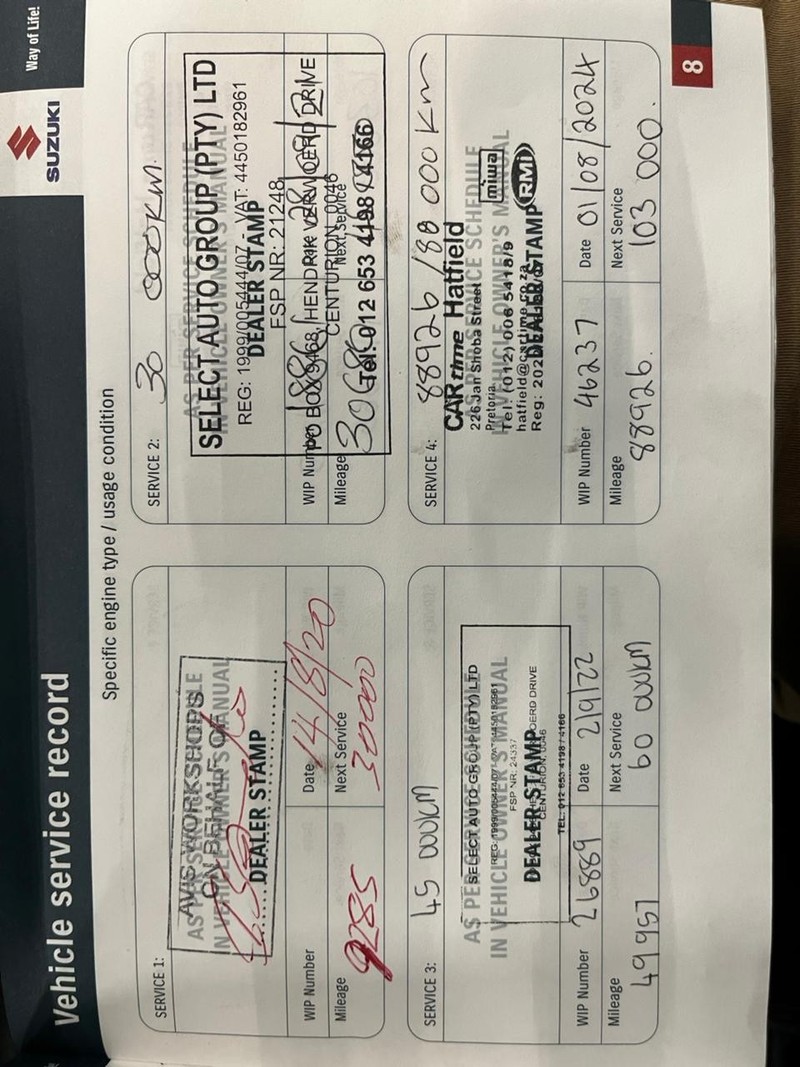 Vehicle service record
SUZUKI
Way of Life!
Specific engine type / usage condition
SERVICE 1:
AVIS WORKSHOPS
AS PER SERVICE SCHEDULE
ON BEHALF OF
IN VEHICLE OWNER'S MANUAL
DEALER STAMP
WIP Number
Date 14/8/20
Mileage 9285
Next Service 30000
SERVICE 2: 30 000KM.
AS PER SERVICE SCHEDULE
SELECT AUTO GROUP (PTY) LTD
IN VEHICLE OWNER'S MANUAL
REG: 1999/005444/07 - VAT: 4450182961
DEALER STAMP
FSP NR: 21248
WIP Number
PO BOX 9468, HENDRIK VERWOERD DRIVE
CENTURION, 0046
Mileage 30680
Next Service
Tel: 012 653 4198 / 4166
SERVICE 3: 45 000KM
AS PER SERVICE SCHEDULE
SELECT AUTO GROUP (PTY) LTD
IN VEHICLE OWNER'S MANUAL
FSP NR: 24337
DEALER STAMP
CENTURION, 0046
TEL: 012 653 4198 / 4166
WIP Number 26889
Date 2/9/22
Mileage 49951
Next Service 60 000KM
SERVICE 4: 88926/88 000 Km
CAR time Hatfield
AS PER SERVICE SCHEDULE
226 Jan Shoba Street
Pretoria
miwa
IN VEHICLE OWNER'S MANUAL
Tel: (012) 006 5418/9
hatfield@cartime.co.za
RMI
DEALER STAMP
WIP Number 46237
Date 01/08/2024
Mileage 88926.
Next Service 103 000.
8